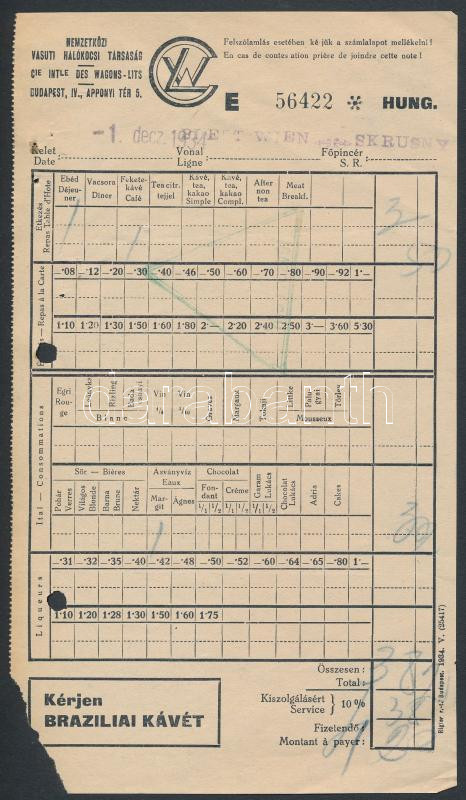 NEMZETKÖZI
VASUTI HÁLÓKOCSI TÁRSASÁG
Cie INTle DES WAGONS-LITS
BUDAPEST, IV., APPONYI TÉR 5.
WL
Felszólamlás esetében kérjük a számlalapot mellékelni!
En cas de contestation prière de joindre cette note!
E 56422 HUNG.
-1. decz. WIEN SKRUSNY
Kelet Vonal Főpincér
Date: Ligne: S. R.
Étkezés
Repas Table d'Hote
Ebéd Déjeuner Vacsora Diner Fekete-kávé Café Tea citr. tejjel Kávé, tea, kakao Simple Kávé, tea, kakao Compl. After non tea Meat Breakf.
1 1 3
50
Repas à la Carte
—·08 —·12 —·20 —·30 —·40 —·46 —·50 —·60 —·70 —·80 —·90 —·92 1·—
1·10 1·20 1·30 1·50 1·60 1·80 2·— 2·20 2·40 2·50 3·— 3·60 5·30
Ital — Consommations
Egri Rouge Leányka Rizling Vin ¼ Vin Margaux Tokaji Littke Palugyai Törley
Blanc Mousseux
Sör — Bières Ásványvíz Eaux Chocolat
Pohár Verres Világos Blonde Barna Brune Nektár Margit Ágnes Fondant Créme Garam Lukács Chocolat Lukács Adria Cakes
1/1 1/2 1/1 1/2 1/1 1/2
1
Liqueurs
—·31 —·32 —·35 —·40 —·42 —·48 —·50 —·52 —·60 —·64 —·65 —·80 1·—
1·10 1·20 1·28 1·30 1·50 1·60 1·75
Összesen:
Total:
Kiszolgálásért
Service } 10 %
Fizetendő:
Montant à payer:
Kérjen
BRAZILIAI KÁVÉT
Budapest. 1934. V. (25417)
darabanth